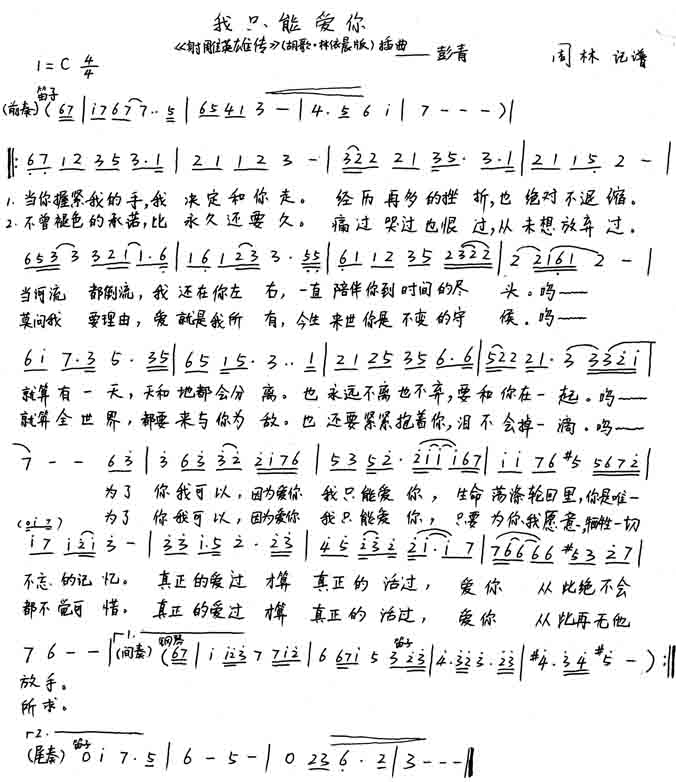 我只能爱你
《射雕英雄传》(胡歌·林依晨版) 插曲——彭青
周林 记谱
1=C 4/4
笛子
(前奏) (67 | i7677·· 5 | 6541 3 — | 4·5 6 i | 7 - - - )|
‖: 67 12 353·1 | 21 12 3 — | 322 21 35· 3·1 | 21 15 2 — |
1. 当你握紧我的手,我 决定和你走。 经历再多的挫折,也绝对不退缩。
2. 不曾褪色的承诺,比 永久还要久。 痛过哭过也恨过,从未想放弃过。
6533 3211·6 | 161233·55 | 61 12 35 2322 | 2 2161 2 — |
当河流 都倒流,我还在你左右,一直陪伴你到时间的尽头。呜——
莫问我 要理由,爱就是我所有,今生来世你是不变的守候。呜——
6i 7·3 5·35 | 65 15·3·· 1 | 21 25 35 6·6 | 522 21·3 332i |
就算有一天,天和地都会分离。也永远不离也不弃,要和你在一起。呜——
就算全世界,都要来与你为敌。也还要紧紧抱着你,泪不会掉一滴。呜——
7 - - 63 | 3 63 32 2i76 | 53 52· 2iii67 | ii 76 #5 5672i |
为了你我可以,因为爱你 我只能爱你,生命荡涤轮回里,你是唯一
为了你我可以,因为爱你 我只能爱你,只要为你我愿意,牺牲一切
(0i2)
i7 i2i 3 — | 33 i·5 2·23 | 45 232 2i·i 7 | 76666 #53 27 |
不忘的记忆。 真正的爱过才算 真正的活过, 爱你 从此绝不会
都不觉可惜。 真正的爱过才算 真正的活过, 爱你 从此再无他
7 6 - - | 1. (间奏) 钢琴 (67 | i i23 7 7i2 | 6 67i 5 笛子 3 23 | 4·323·23 | #4·34 #5 - ) :‖
放手。
所求。
2.
(尾奏) 笛子 0 i 7·5 | 6 - 5 - | 0 23 6·2 | 3 - - - ‖